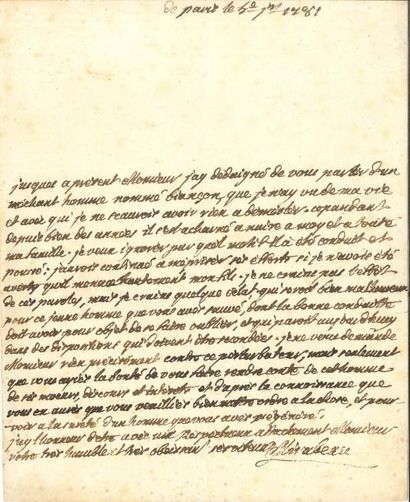 de paris le 5e jer 1781
jusques a present Monsieur j'ay dedaigné de vous parler d'un
mechant homme nommé Briançon, que je n'ay vu de ma vie
et avec qui je ne scauroir avoir rien a demesler. cependant
depuis bien des années il s'est acharné a nuire a moy et a toute
ma famille. je veux ignorer par quel motif il a été conduit et
poussé. j'aurois continué a mépriser ses efforts si je n'avois été
averty qu'il menace hautement mon fils. je ne crains pas l'effet
de ces paroles, mais je crains quelque éclat qui seroit bien malheureux
pour ce jeune homme que vous avés sauvé, dont la bonne conduitte
doit avoir pour objet de se faire oublier, et qui paroit aujourdhuy
dans des dispositions qui doivent etre secondées. je ne vous demande
Monsieur rien precisément contre ce perturbateur, mais seulement
que vous ayiés la bonté de vous faire rendre conte de cet homme
de ses moeurs, discours et interets et d'apres la connoissance que
vous en aurés que vous veuilliés bien mettre ordre a la chose, et pour-
voir a la sureté d'un homme que vous avés préservé.
j'ay l'honneur d'etre avec un respectueux attachement Monsieur
votre tres humble et tres obeissant serviteur Mirabeau